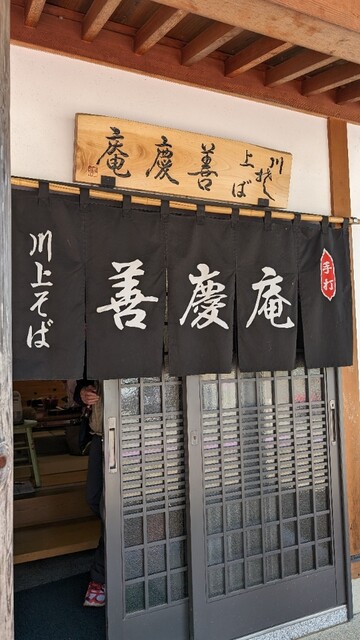 川上そば
善慶庵
川上そば
善慶庵
手打